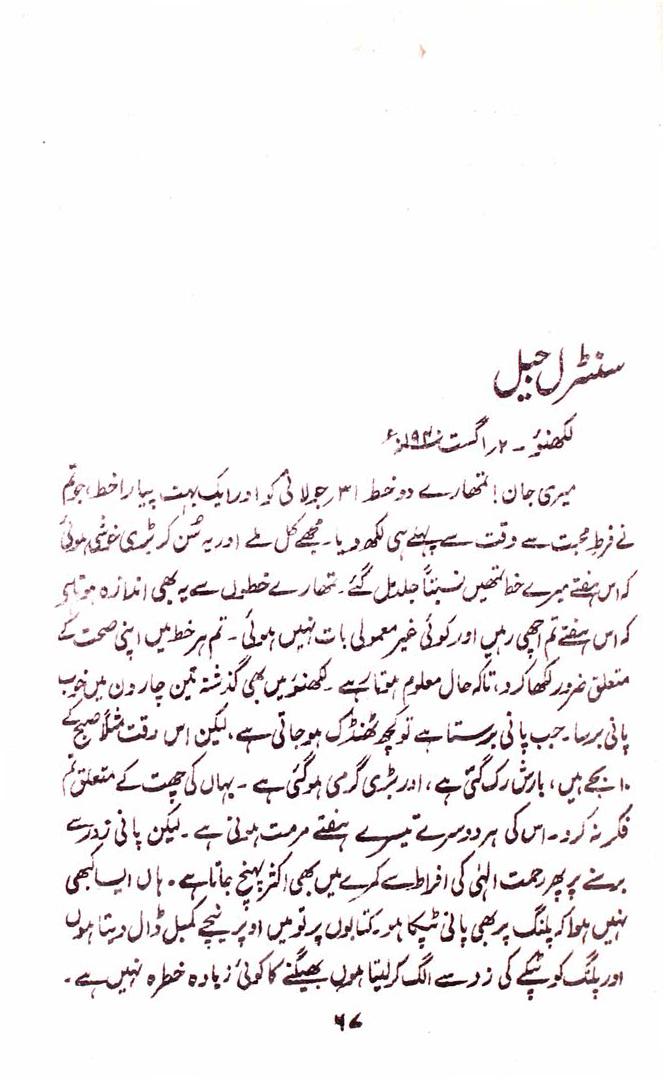 سنٹرل جیل
لکھنؤ ۔ ۲؍ اگست ۱۹۴۰ء
میری جان! تمھارے دو خط ۳۱؍ جولائی کو اور ایک بہت پیارا خط، جو تم
نے فرطِ محبت سے وقت سے پہلے ہی لکھ دیا۔ مجھے کل ملے اور یہ سُن کر بڑی خوشی ہوئی
کہ اس ہفتے میرے خط تمھیں نسبتاً جلد مل گئے۔ تمھارے خطوں سے یہ بھی اندازہ ہوتا ہے
کہ اس ہفتے تم اچھی رہیں اور کوئی غیر معمولی بات نہیں ہوئی۔ تم ہر خط میں اپنی صحت کے
متعلق ضرور لکھا کرو، تاکہ حال معلوم ہوتا رہے۔ لکھنؤ میں بھی گذشتہ تین چار دن میں خوب
پانی برسا۔ جب پانی برستا ہے تو کچھ ٹھنڈک ہو جاتی ہے، لیکن اس وقت مثلاً صبح کے
۱۰ بجے ہیں، بارش رک گئی ہے، اور بڑی گرمی ہو گئی ہے ۔ یہاں کی چھت کے متعلق تم
فکر نہ کرو۔ اس کی ہر دوسرے تیسرے ہفتے مرمت ہوتی ہے۔ لیکن پانی زور سے
برسنے پر پھر رحمت الٰہی کی افراط سے کمرے میں بھی اکثر پہنچ جاتا ہے۔ ہاں ایسا کبھی
نہیں ہوا کہ پلنگ پر بھی پانی ٹپکا ہو۔ کتابوں پر تو میں اوپر نیچے کمبل ڈال دیتا ہوں
اور پلنگ کو ٹپکے کی زد سے الگ کر لیتا ہوں بھیگنے کا کوئی زیادہ خطرہ نہیں ہے۔
۶۷